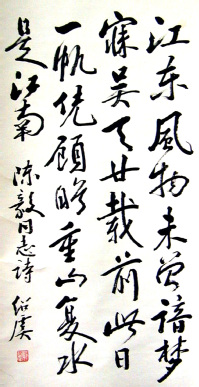 江东風物未曾諳梦
寐吴天廿載前此日
一帆凭顧盼重山复水
是江南 陈毅同志詩 绍虞